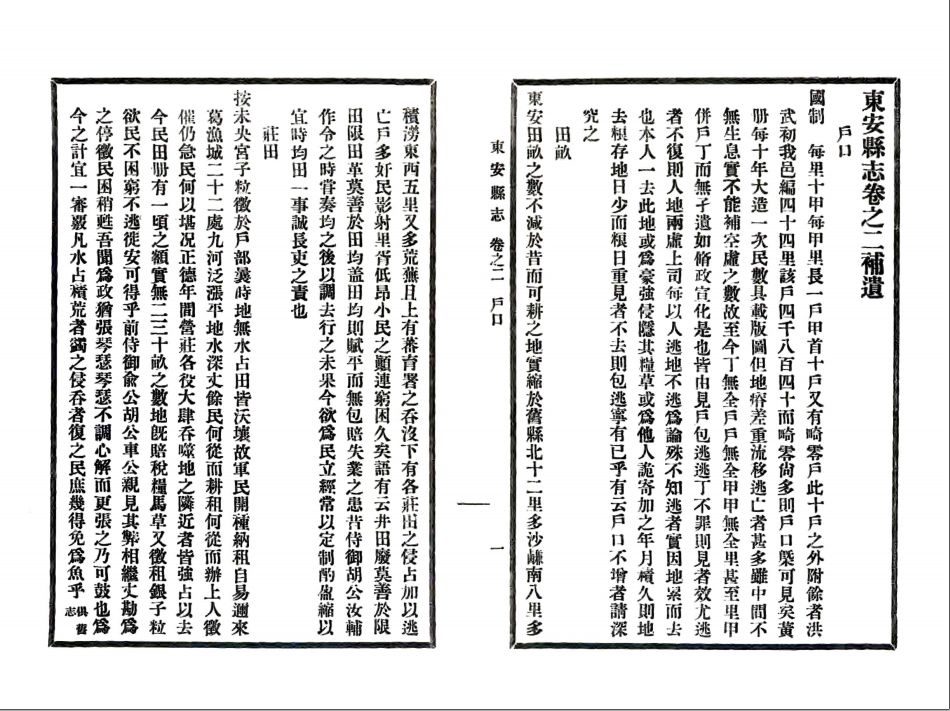 東安縣志卷之二補遺
戶口
國制 每里十甲每甲里長一戶甲首十戶又有畸零戶此十戶之外附餘者洪
武初我邑編四十四里該戶四千八百四十而畸零尙多則戶口槩可見矣黃
册每十年大造一次民數具載版圖但地瘠差重流移逃亡者甚多雖中間不
無生息實不能補空虛之數故至今丁無全戶戶無全甲甲無全里甚至里甲
併戶丁而無孑遺如脩政宣化是也皆由見戶包逃逃丁不罪則見者效尤逃
者不復則人地兩虛上司每以人逃地不逃爲論殊不知逃者實因地累而去
也本人一去此地或爲豪強侵隱其糧草或爲他人詭寄加之年月積久則地
去糧存地日少而糧日重見者不去則包逃寧有已乎有云戶口不增者請深
究之
田畝
東安田畝之數不減於昔而可耕之地實縮於舊縣北十二里多沙鹻南八里多
東安縣志 卷之二 戶口
一
積澇東西五里又多荒蕪且上有蕃育署之吞沒下有各莊田之侵占加以逃
亡戶多奸民影射里胥低昂小民之顚連窮困久矣語有云井田廢莫善於限
田限田革莫善於均田均則賦平而無包賠失業之患昔侍御胡公汝輔
作令之時嘗奏均之後以調去行之未果今欲爲民立經常以定制酌盈縮以
宜時均田一事誠長吏之責也
莊田
按未央宮子粒徵於戶部曩時地無水占田皆沃壤故軍民開種納租自易邇來
葛漁城二十二處九河泛漲平地水深丈餘民何從而耕租何從而辦上人徵
催仍急民何以堪况正德年間營莊各役大肆吞噬地之隣近者皆強占以去
今民田册有一頃之額實無二三十畝之數地旣賠稅糧馬草又徵租銀子粒
欲民不困窮不逃徙安可得乎前侍御俞公胡公車公親見其弊相繼丈勘爲
之停徵民困稍甦吾聞爲政猶張琴瑟琴瑟不調心解而更張之乃可鼓也爲
今之計宜一審覈凡水占積荒者蠲之侵吞者復之民庶幾得免爲魚乎 俱舊志